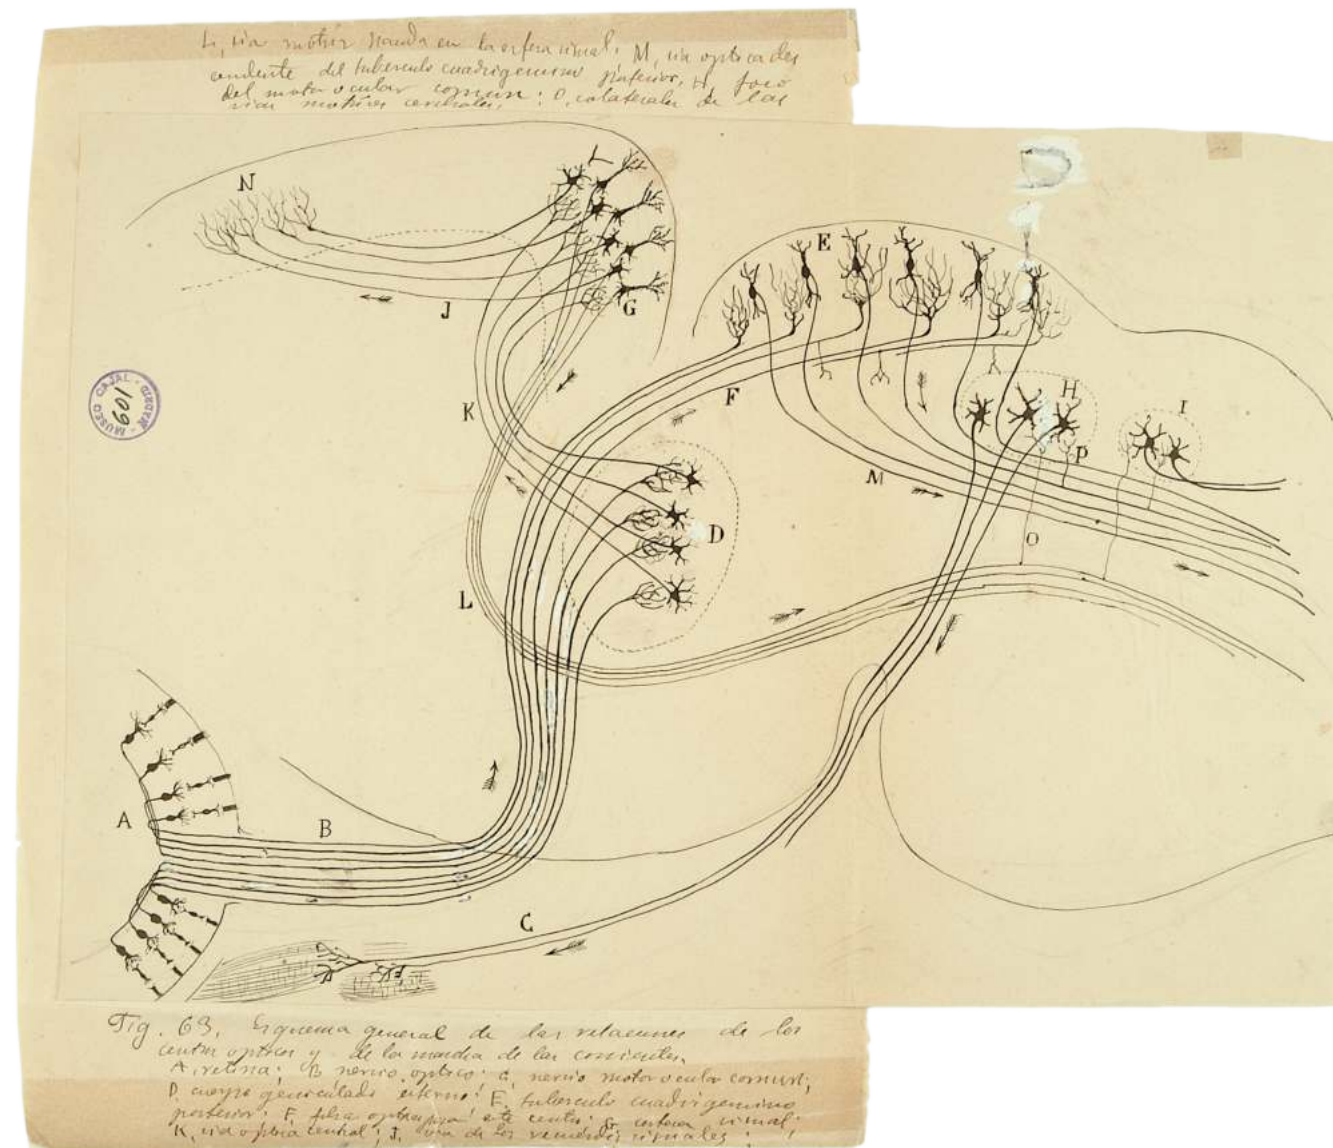 L, via motriz nacida en la esfera visual; M, via optica des
cendente del tuberculo cuadrigemino posterior. H, foco
del motor ocular comun; O, colaterales de las
vias motrices cerebrales.
N
E
G
J
H
I
F
K
P
M
D
O
L
MUSEO CAJAL - MADRID
601
A
B
C
Fig. 63. Esquema general de las relaciones de los
centros opticos y de la marcha de las corrientes.
A, retina; B nervio optico; C, nervio motor ocular comun;
D, cuerpo geniculado externo; E, tuberculo cuadrigemino
posterior; F, fibra optica para este centro; G corteza visual;
K, via optica central; J, via de los recuerdos visuales;